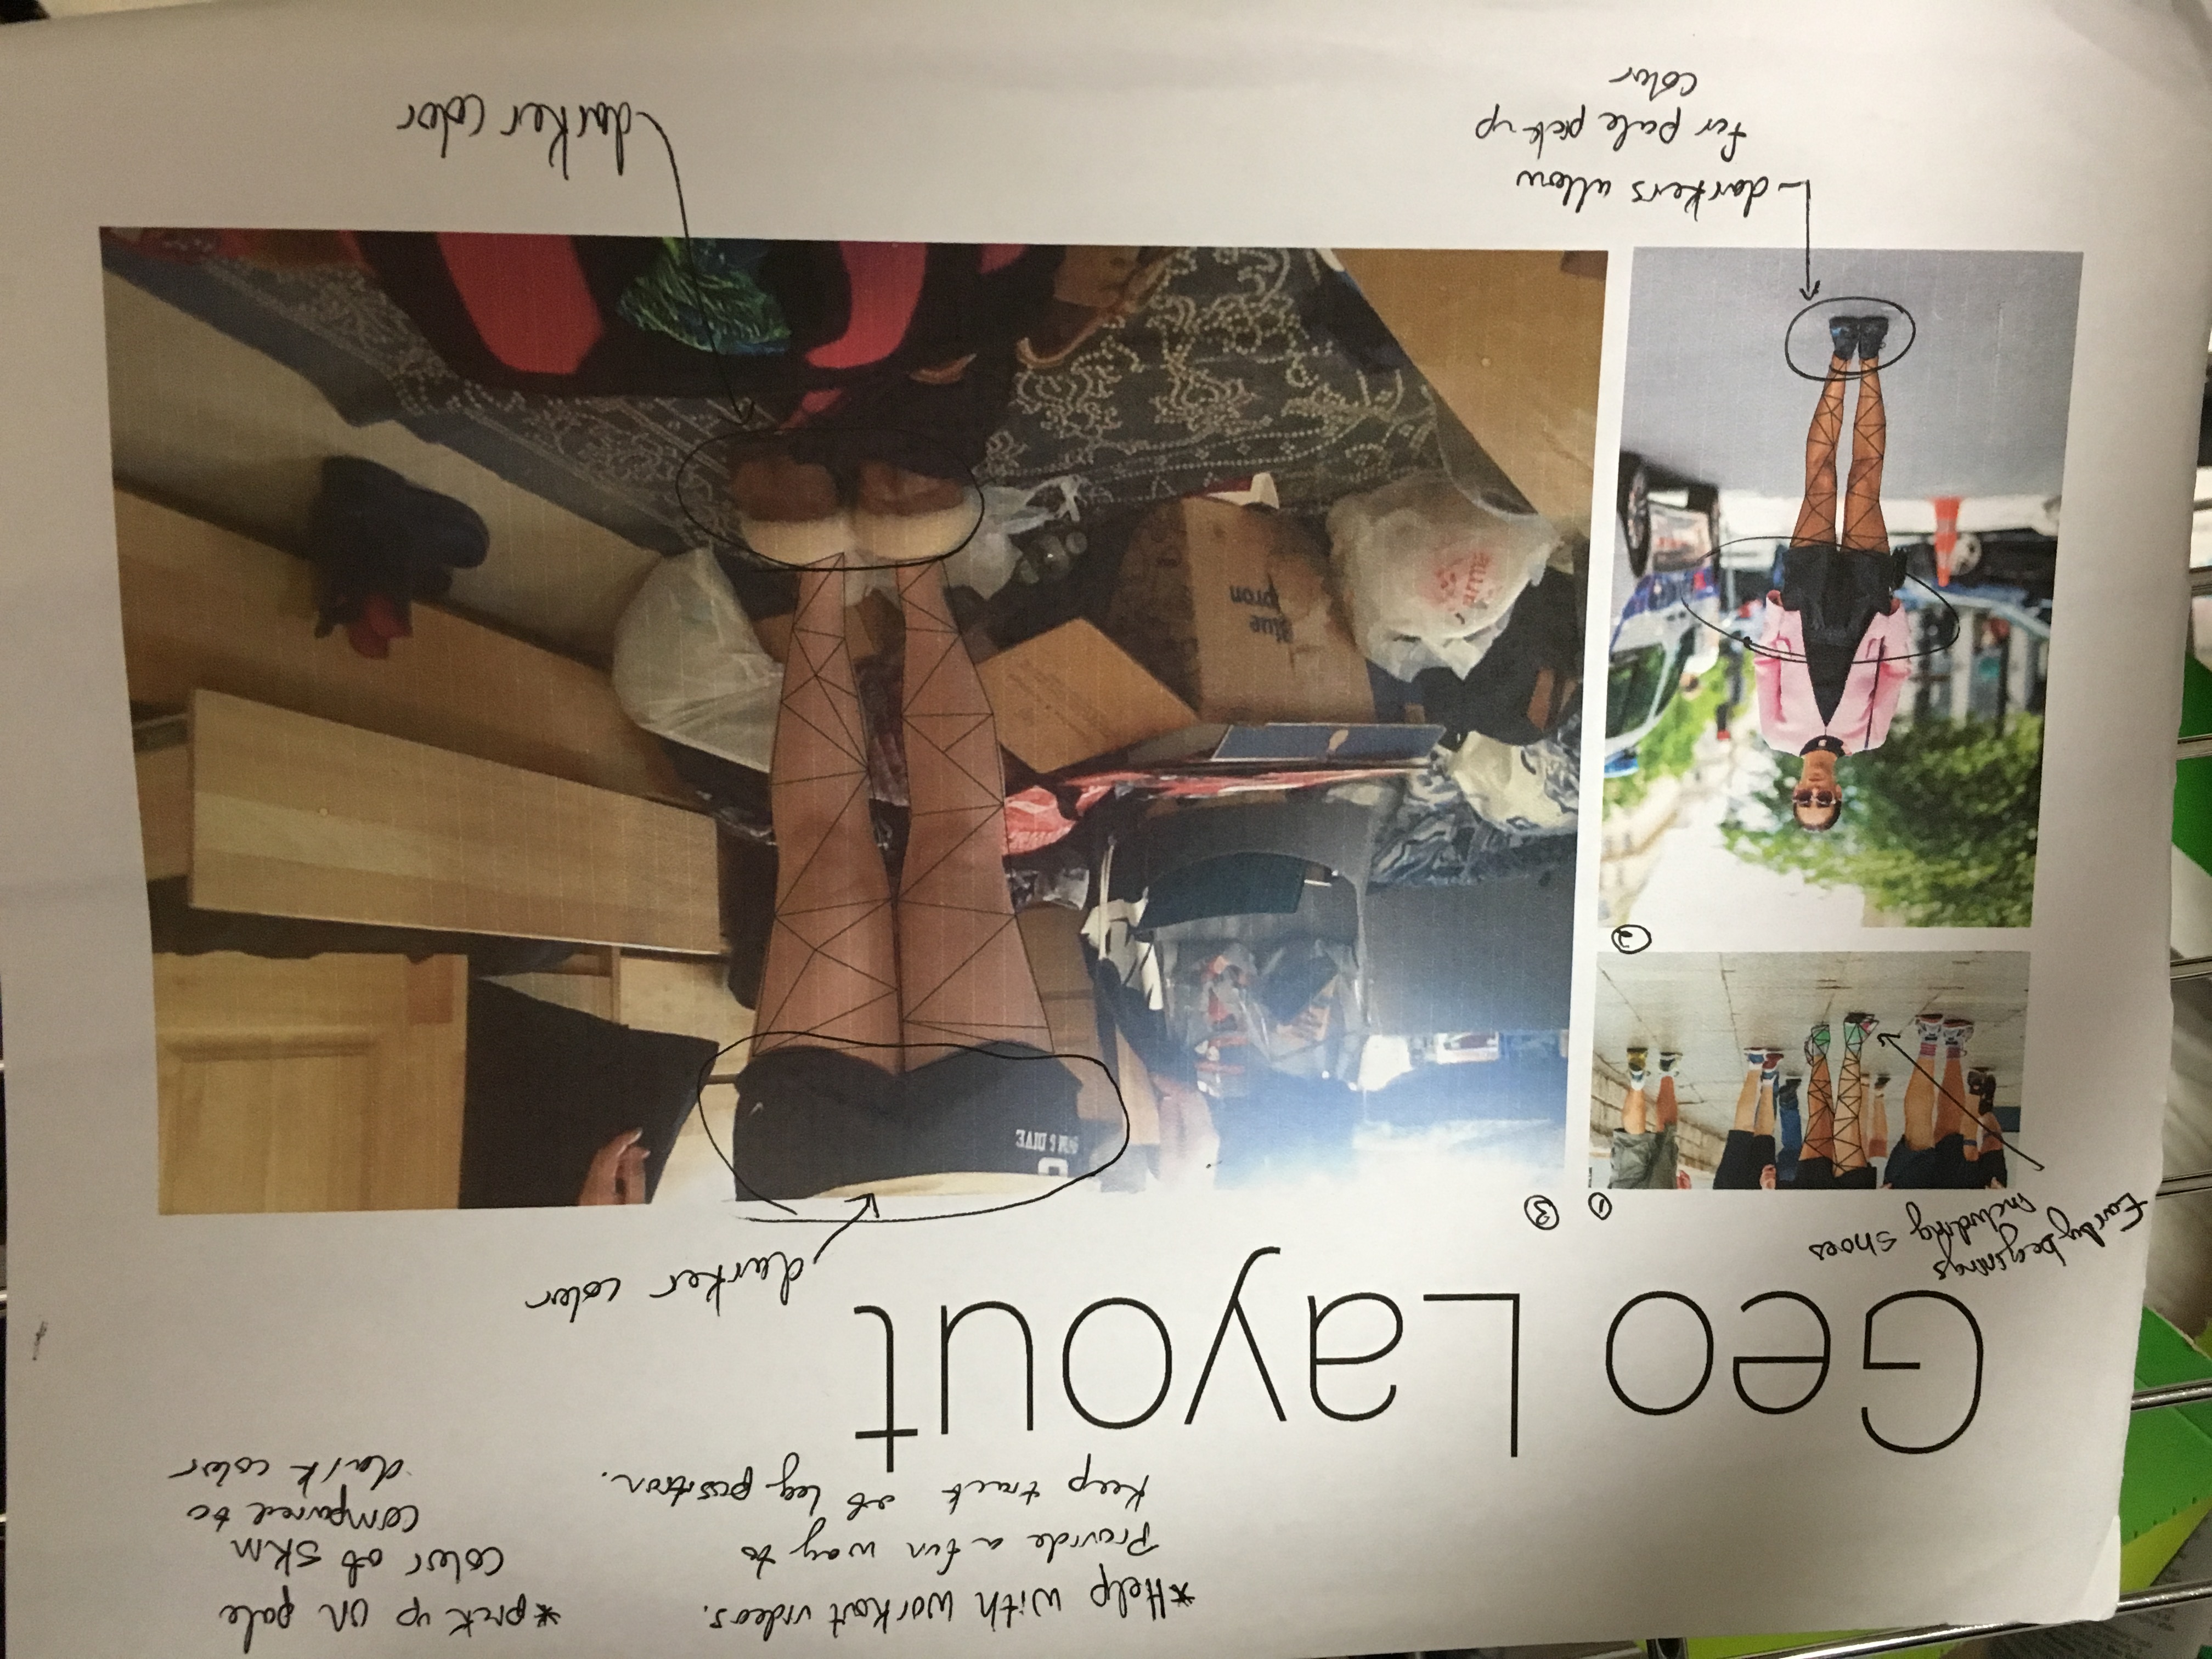 *Help with workout videos.
Provide a fun way to
Keep track of leg position.
*pick up on pale
color of skin
compared to
dark color
Geo Layout
darker color
Early beginnings
including shoes
1
3
& DIVE
2
Blue
pron
darkers allow
for pale pick up
color
darker color